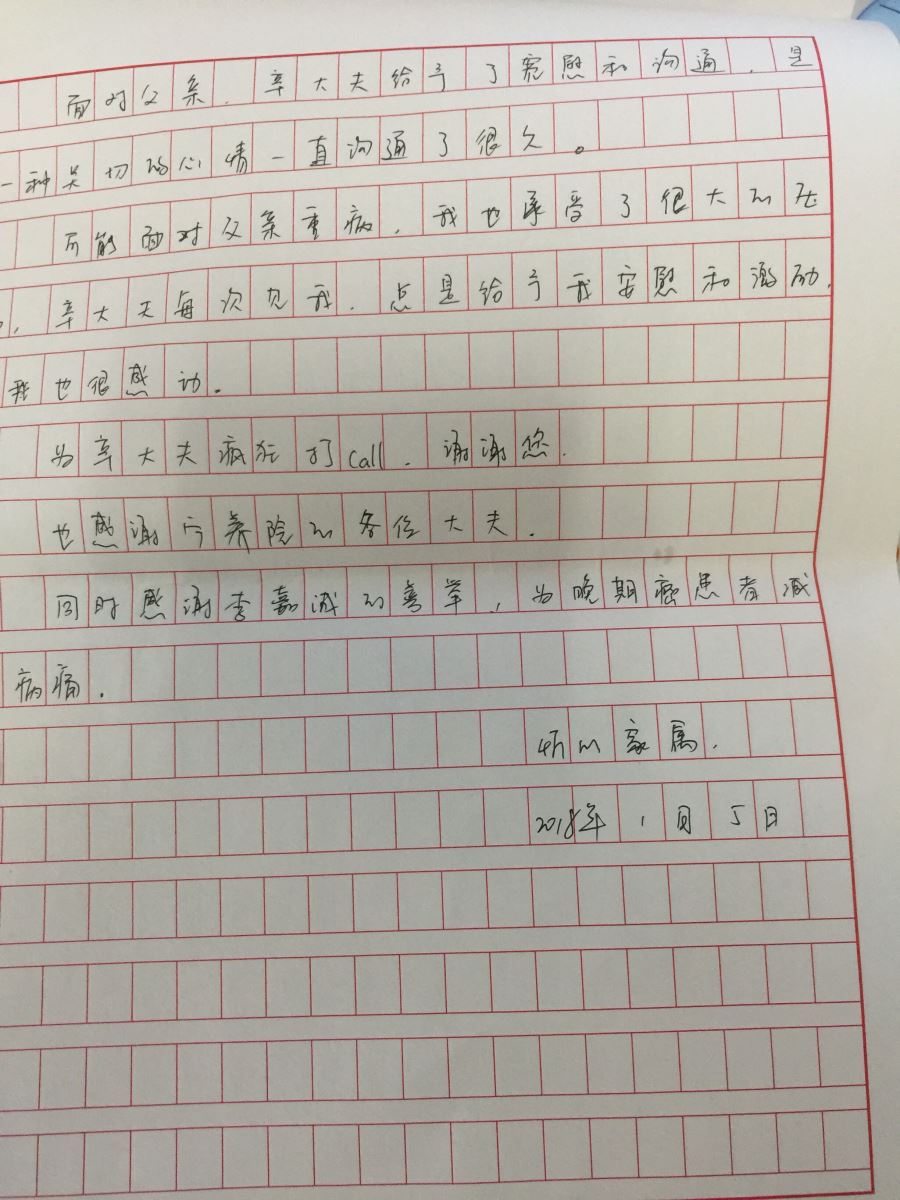 面对父亲，辛大夫给予了宽慰和沟通，是
一种关切的心情一直沟通了很久。
可能面对父亲重病，我也承受了很大的压
，辛大夫每次见我，总是给予我安慰和激励，
我也很感动。
为辛大夫疯狂打call，谢谢您．
也感谢宁养院的各位大夫．
同时感谢李嘉诚的善举，为晚期癌患者减
病痛．
的家属．
2018年1月5日